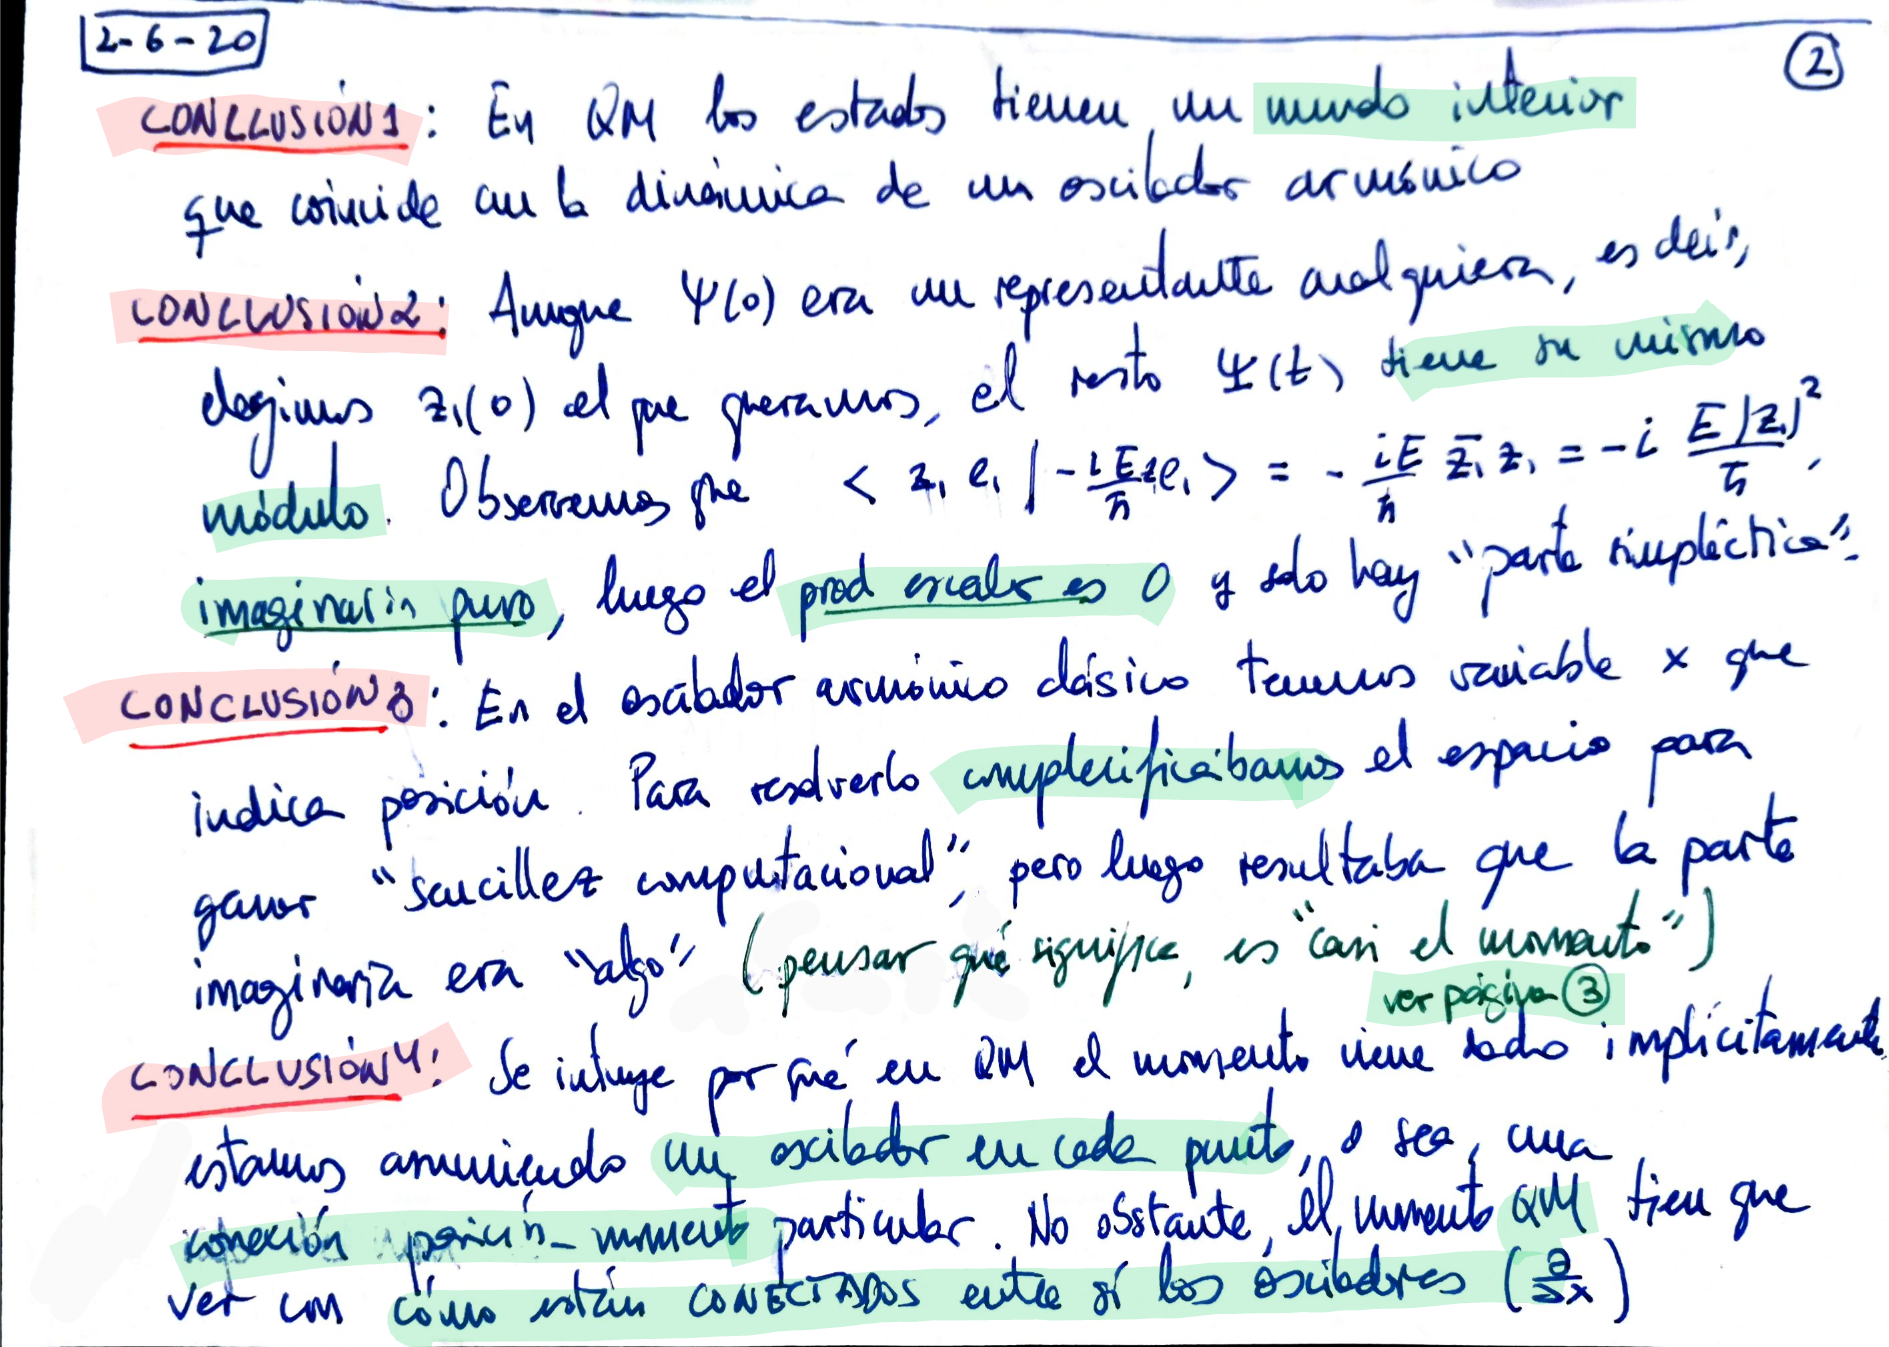 2-6-20
2
CONCLUSIÓN 1: En QM los estados tienen un mundo interior
que coincide con la dinámica de un oscilador armónico
CONCLUSIÓN 2: Aunque Ψ(0) era un representante cualquiera, es decir,
elegimos z₁(0) el que queramos, el resto Ψ(t) tiene su mismo
módulo. Observemos que < z₁ e₁ | -iE/ħ z₁e₁ > = - iE/ħ z̄₁ z₁ = -i E|z₁|²/ħ,
imaginario puro, luego el prod escalar es 0 y solo hay "parte simpléctica".
CONCLUSIÓN 3: En el oscilador armónico clásico tenemos variable x que
indica posición. Para resolverlo complexificábamos el espacio para
ganar "sencillez computacional", pero luego resultaba que la parte
imaginaria era "algo" (pensar qué significa, es "casi el momento")
ver página 3
CONCLUSIÓN 4: Se intuye por qué en QM el momento viene dado implícitamente
estamos asumiendo un oscilador en cada punto, o sea, una
conexión posición-momento particular. No obstante, el momento QM tien que
ver con cómo están CONECTADOS entre sí los osciladores (∂/∂x)